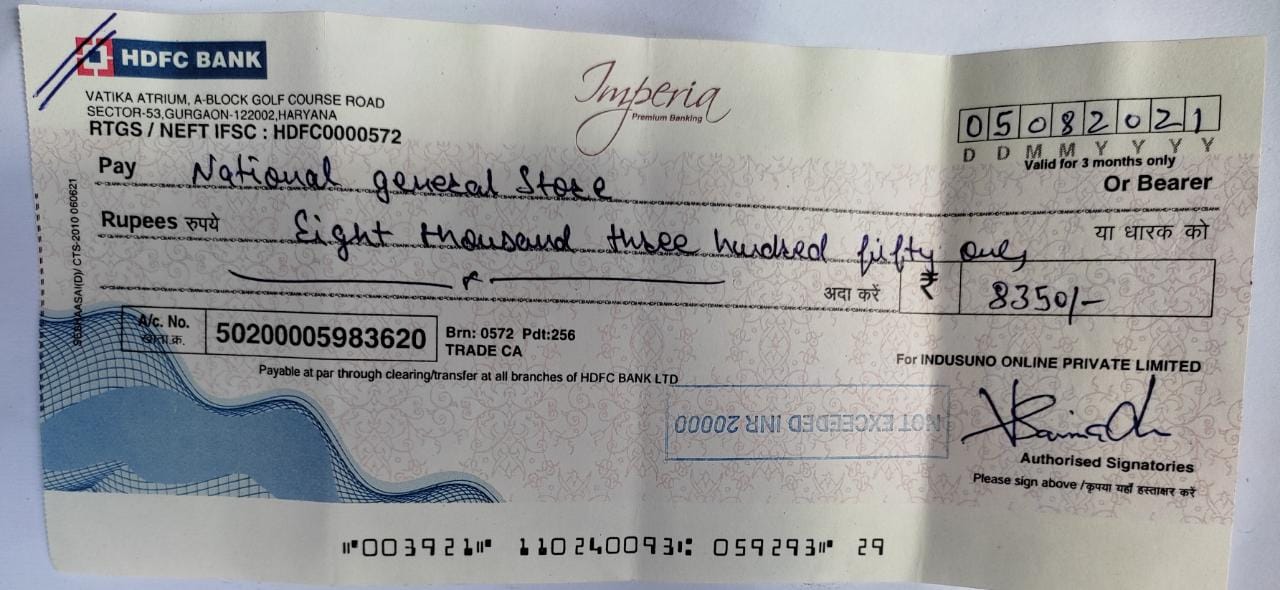 HDFC BANK
VATIKA ATRIUM, A-BLOCK GOLF COURSE ROAD
SECTOR-53,GURGAON-122002,HARYANA
RTGS / NEFT IFSC : HDFC0000572
Imperia
Premium Banking
05082021
D D M M Y Y Y Y
Valid for 3 months only
Pay National general Store Or Bearer
Rupees रुपये Eight thousand three hundred fifty only या धारक को
अदा करें ₹ 8350/-
A/c. No. 50200005983620
खाता क्र.
Brn: 0572 Pdt:256
TRADE CA
Payable at par through clearing/transfer at all branches of HDFC BANK LTD
For INDUSUNO ONLINE PRIVATE LIMITED
NOT EXCEEDED INR 20000
Authorised Signatories
Please sign above /कृपया यहाँ हस्ताक्षर करें
CTS-2010 060621
⑈003921⑈ 110240093⑆ 059293⑈ 29